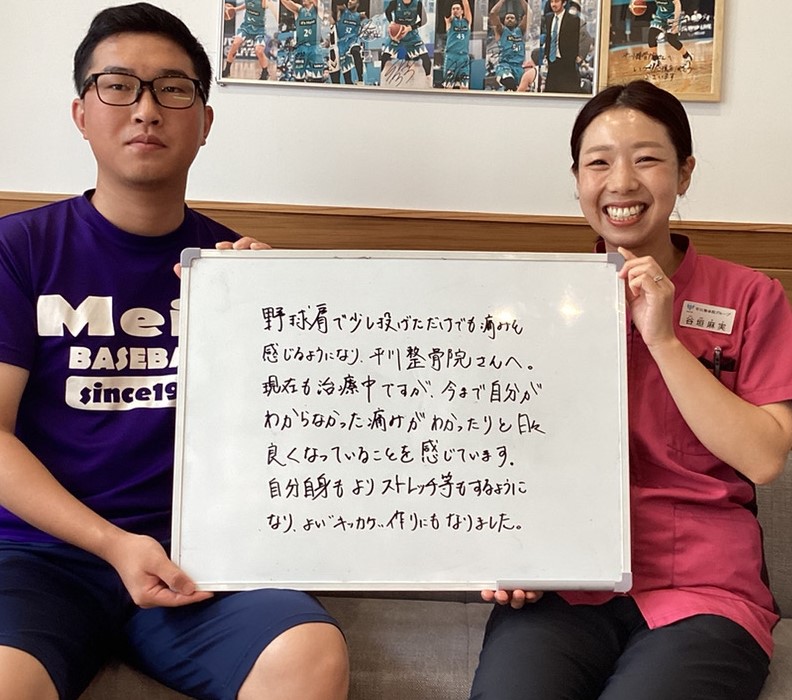 Mei
BASEBA
since19
谷垣麻実
野球肩で少し投げただけでも痛みを
感じるようになり、平川整骨院さんへ。
現在も治療中ですが、今まで自分が
わからなかった痛みがわかったりと日々
良くなっていることを感じています。
自分自身もよりストレッチ等もするように
なり、よい"キッカケ"作りにもなりました。